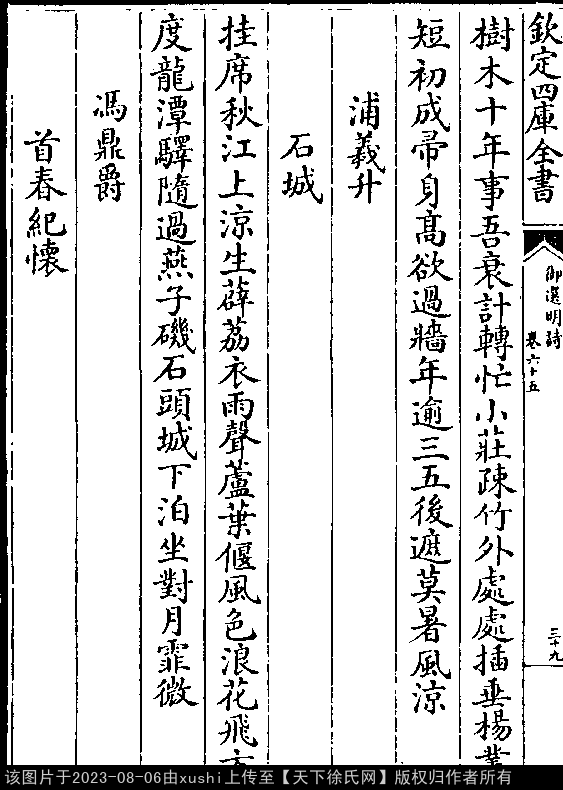 欽定四庫全書
御選明詩
卷六十五
三十九
樹木十年事吾衰計轉忙小莊疎竹外處處插垂楊葉
短初成帚身髙欲過牆年逾三五後遮莫暑風涼
浦義升
石城
挂席秋江上涼生薜荔衣雨聲蘆葉偃風色浪花飛
度龍潭驛隨過燕子磯石頭城下泊坐對月霏微
馮鼎爵
首春紀懷
该图片于2023-08-06由xushi上传至【天下徐氏网】版权归作者所有